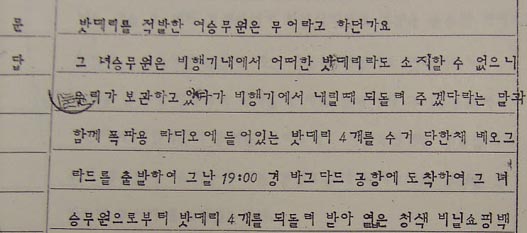 문 밧데리를 적발한 여승무원은 무어라고 하던가요
답 그 녀승무원은 비행기내에서 어떠한 밧데리라도 소지할 수 없으니
우리가 보관하고 있다가 비행기에서 내릴때 되돌려 주겠다라는 말과
함께 폭파용 라디오에 들어있는 밧데리 4개를 수거 당한채 베오그
라드를 출발하여 그날 19:00 경 바그다드 공항에 도착하여 그 녀
승무원으로부터 밧데리 4개를 되돌려 받아 엷은 청색 비닐쇼핑백